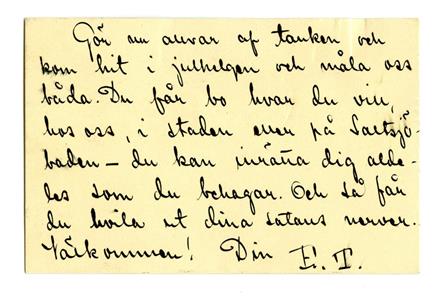 Gör nu anvar af tanken och
kom hit i julhelgen och måla oss
båda. Du får bo hvar du vill,
hos oss, i staden eller på Saltsjö-
baden – du kan inrätta dig alde-
les som du behagar. Och så får
du hvila ut dina satans nerver.
Välkommen! Din E. T.